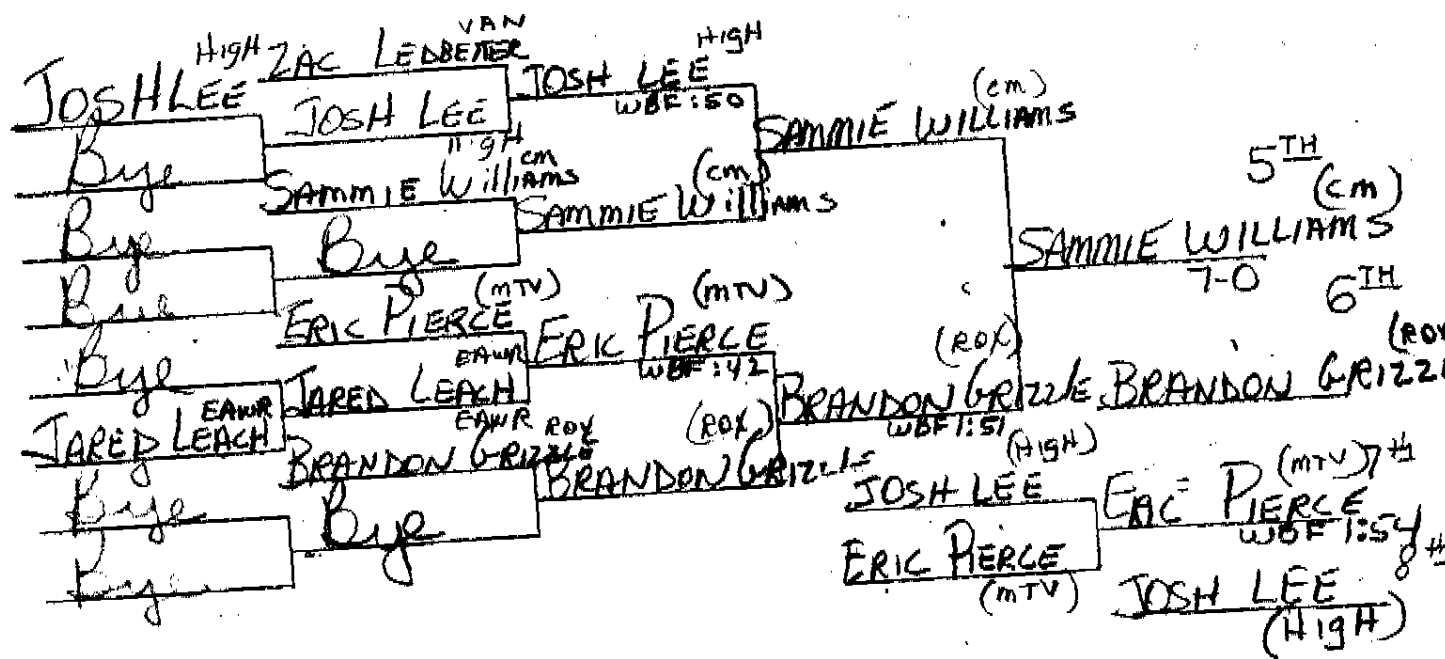 JOSH LEE HIGH
Bye
Bye
Bye
Bye
JARED LEACH EAWR
Bye
Bye
ZAC LEDBETTER VAN
JOSH LEE
HIGH
SAMMIE WILLIAMS cm
Bye
ERIC PIERCE (MTV)
JARED LEACH EAWR
EAWR
BRANDON GRIZZLE ROX
Bye
JOSH LEE HIGH
WBF :50
SAMMIE WILLIAMS (cm)
ERIC PIERCE (MTV)
WBF :42
BRANDON GRIZZLE (ROX)
SAMMIE WILLIAMS (cm)
BRANDON GRIZZLE (ROX)
WBF 1:51
5TH
SAMMIE WILLIAMS (cm)
7-0
6TH
BRANDON GRIZZL (ROX
JOSH LEE (HIGH)
ERIC PIERCE
(MTV)
PIERCE (MTV) 7th
WBF 1:54
8th
JOSH LEE
(HIGH)